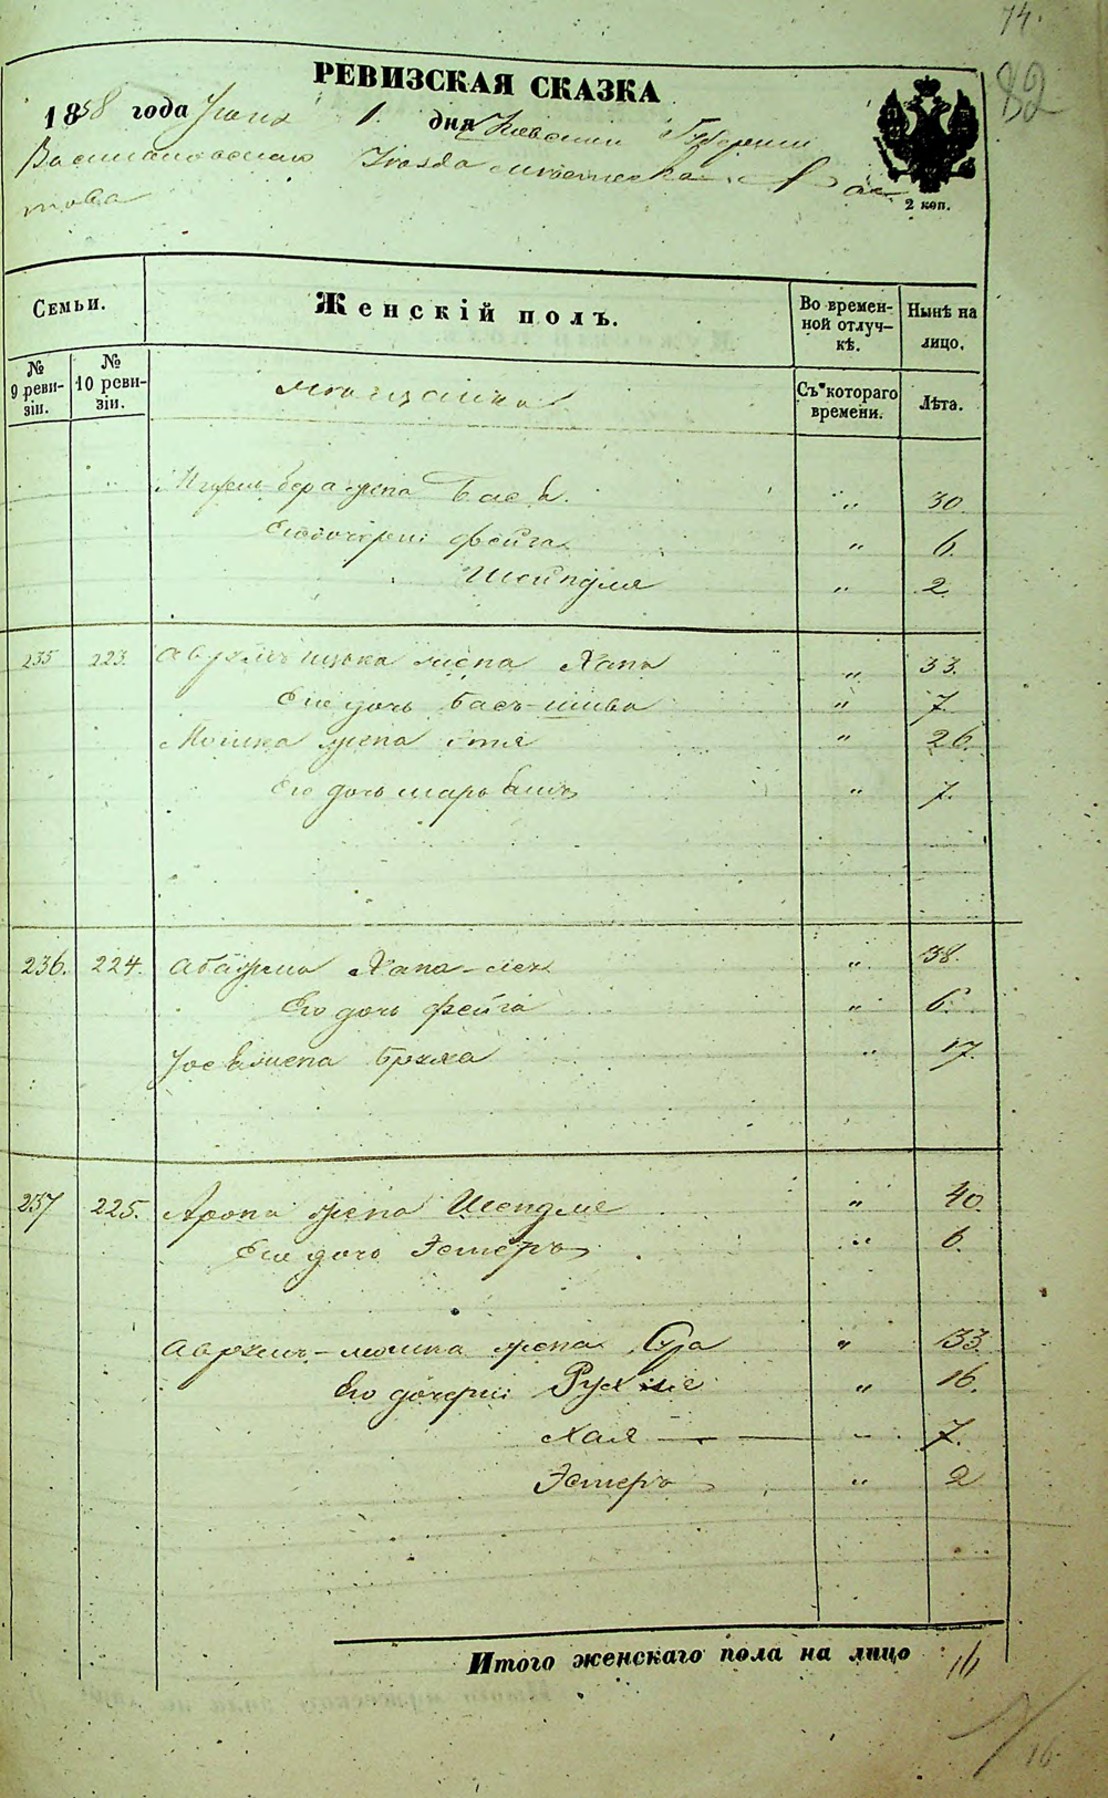 74.
82
РЕВИЗСКАЯ СКАЗКА
1858 года Іюня 1 дня Кіевской Губерніи
Васильковскаго Уѣзда мѣстечка Фас
това
2 коп.
Семьи.
Женскій полъ.
Во времен-
ной отлуч-
кѣ.
Нынѣ на
лицо.
№
9 реви-
зіи.
№
10 реви-
зіи.
Съ котораго
времени.
Лѣта.
Мѣщане
Бера жена Бася „ 30.
Его дочери: Фейга „ 6.
Шейндля „ 2.
235 223. Аврумъ Ицька жена Хана „ 33.
Его дочь Бася-шива „ 7.
Мошка жена Этя „ 26.
Его дочь „ 7.
236. 224. Хана-лея „ 38.
Его дочь Фейга „ 6.
Жена Бруха „ 17.
237 225. Арона жена Шендля „ 40.
Его дочь Эстеръ „ 6.
Аврумъ-Мошка жена Сура „ 33
Его дочери: Рухля „ 16.
Хая — „ 7.
Эстеръ „ 2
Итого женскаго пола на лицо 16
16.